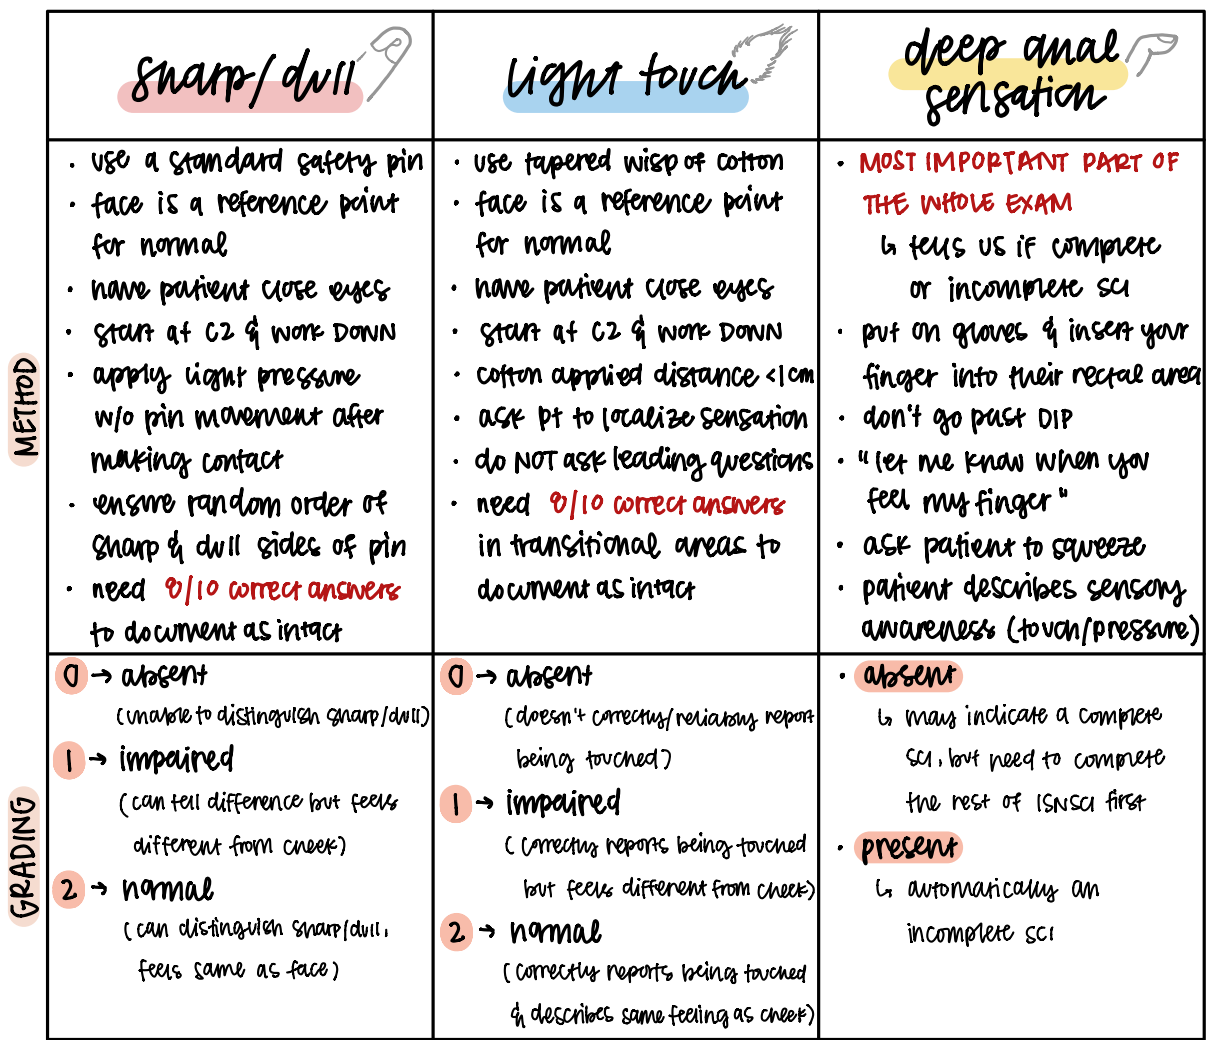 sharp/dull
light touch
deep anal
sensation
METHOD
• use a standard safety pin
• face is a reference point
for normal
• have patient close eyes
• start at C2 & work DOWN
• apply light pressure
w/o pin movement after
making contact
• ensure random order of
sharp & dull sides of pin
• need 8/10 correct answers
to document as intact
• use tapered wisp of cotton
• face is a reference point
for normal
• have patient close eyes
• start at C2 & work DOWN
• cotton applied distance <1cm
• ask pt to localize sensation
• do NOT ask leading questions
• need 8/10 correct answers
in transitional areas to
document as intact
• MOST IMPORTANT PART OF
THE WHOLE EXAM
↳ tells us if complete
or incomplete SCI
• put on gloves & insert your
finger into their rectal area
• don't go past DIP
• "let me know when you
feel my finger"
• ask patient to squeeze
• patient describes sensory
awareness (touch/pressure)
GRADING
0 → absent
(unable to distinguish sharp/dull)
1 → impaired
(can tell difference but feels
different from cheek)
2 → normal
(can distinguish sharp/dull,
feels same as face)
0 → absent
(doesn't correctly/reliably report
being touched)
1 → impaired
(correctly reports being touched
but feels different from cheek)
2 → normal
(correctly reports being touched
& describes same feeling as cheek)
• absent
↳ may indicate a complete
SCI, but need to complete
the rest of ISNSCI first
• present
↳ automatically an
incomplete SCI